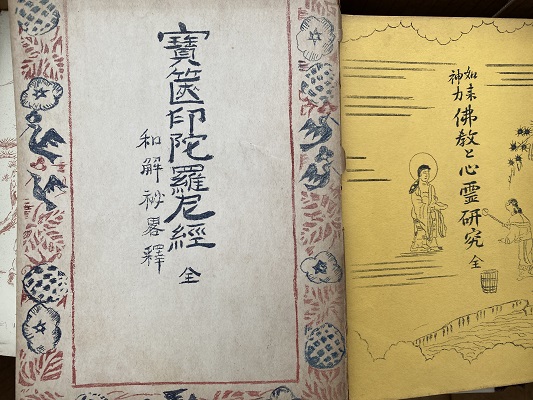 寶篋印陀羅尼經 全
和解祕畧釋
如来
神力
佛教と心霊研究 全